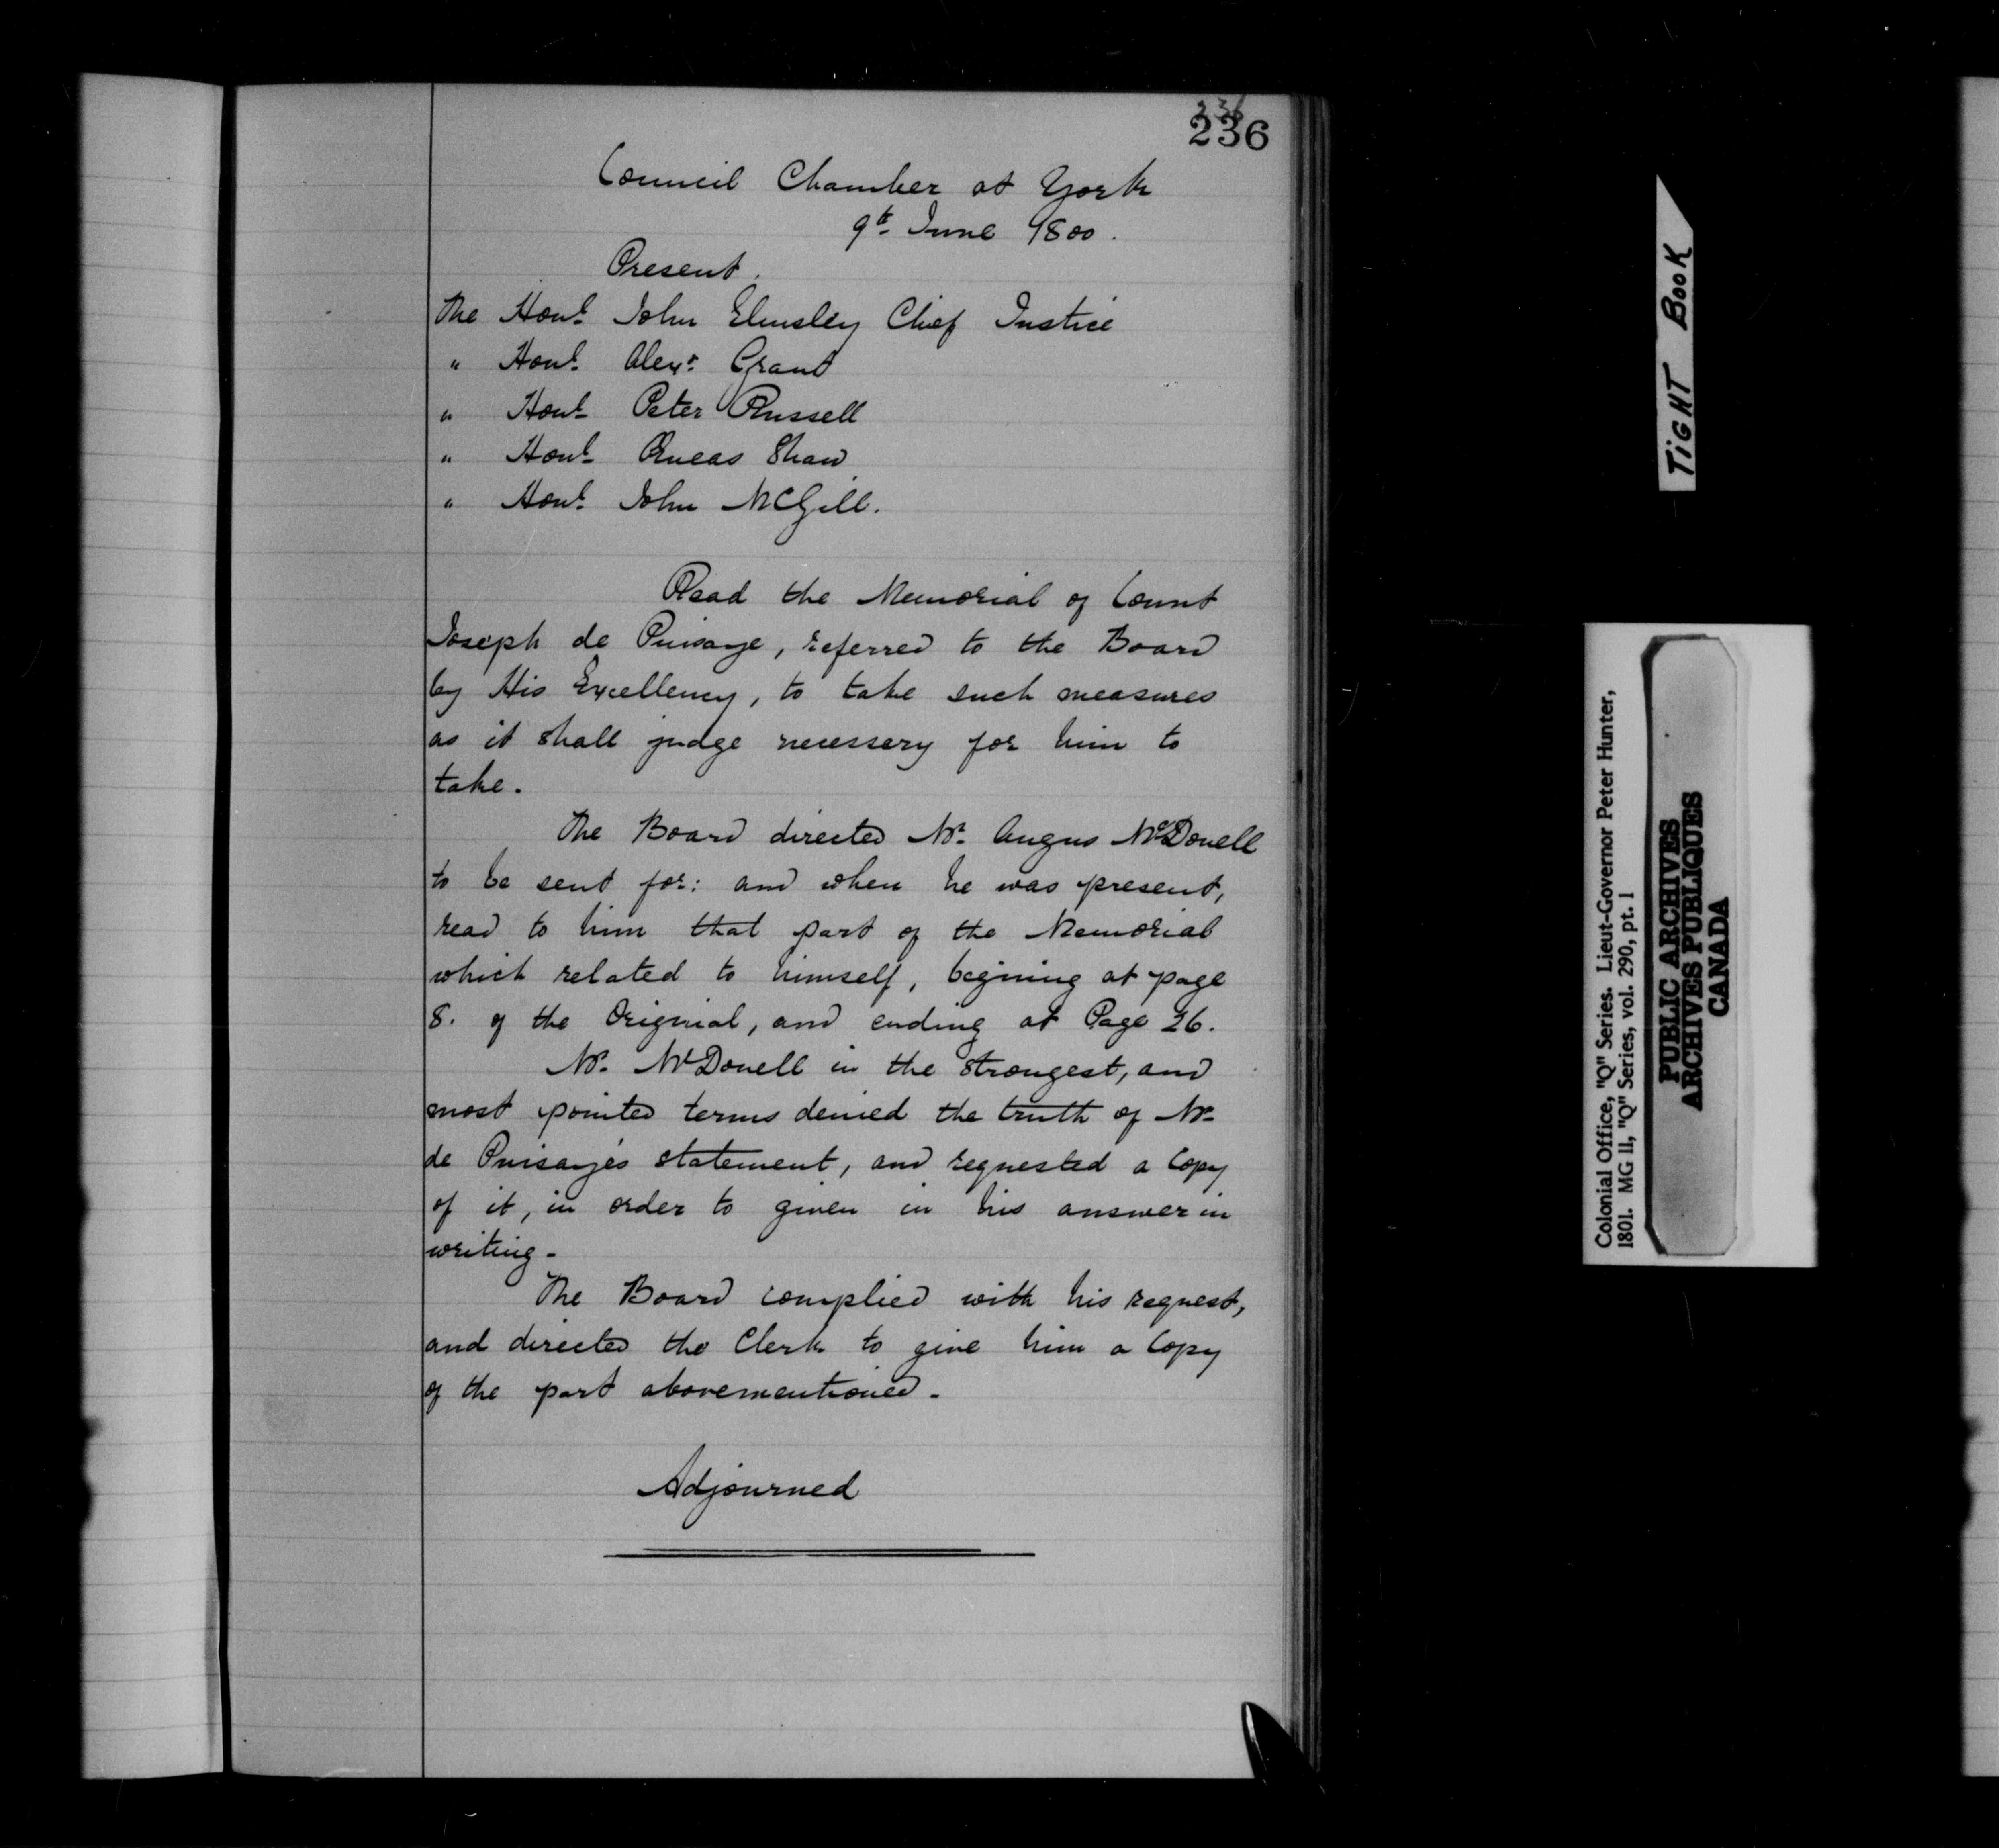 236
236
Council Chamber at York
9th June 1800.
Present.
The Honl. John Elmsley Chief Justice
" Honl. Alexr. Grant
" Honl. Peter Russell
" Honl. Æneas Shaw
" Honl. John McGill.
Read the Memorial of Count
Joseph de Puisaye, referred to the Board
by His Excellency, to take such measures
as it shall judge necessery for him to
take.
The Board directed Mr. Angus McDonell
to be sent for: and when he was present,
read to him that part of the Memorial
which related to himself, begining at page
8. of the Original, and ending at Page 26.
Mr. McDonell in the strongest, and
most pointed terms denied the truth of Mr.
de Puisaye's statement, and requested a Copy
of it, in order to given in his answer in
writing.
The Board complied with his request,
and directed the Clerk to give him a Copy
of the part abovementioned.
Adjourned
TIGHT BOOK
Colonial Office, "Q" Series. Lieut-Governor Peter Hunter,
1801. MG 11, "Q" Series, vol. 290, pt. 1
PUBLIC ARCHIVES
ARCHIVES PUBLIQUES
CANADA